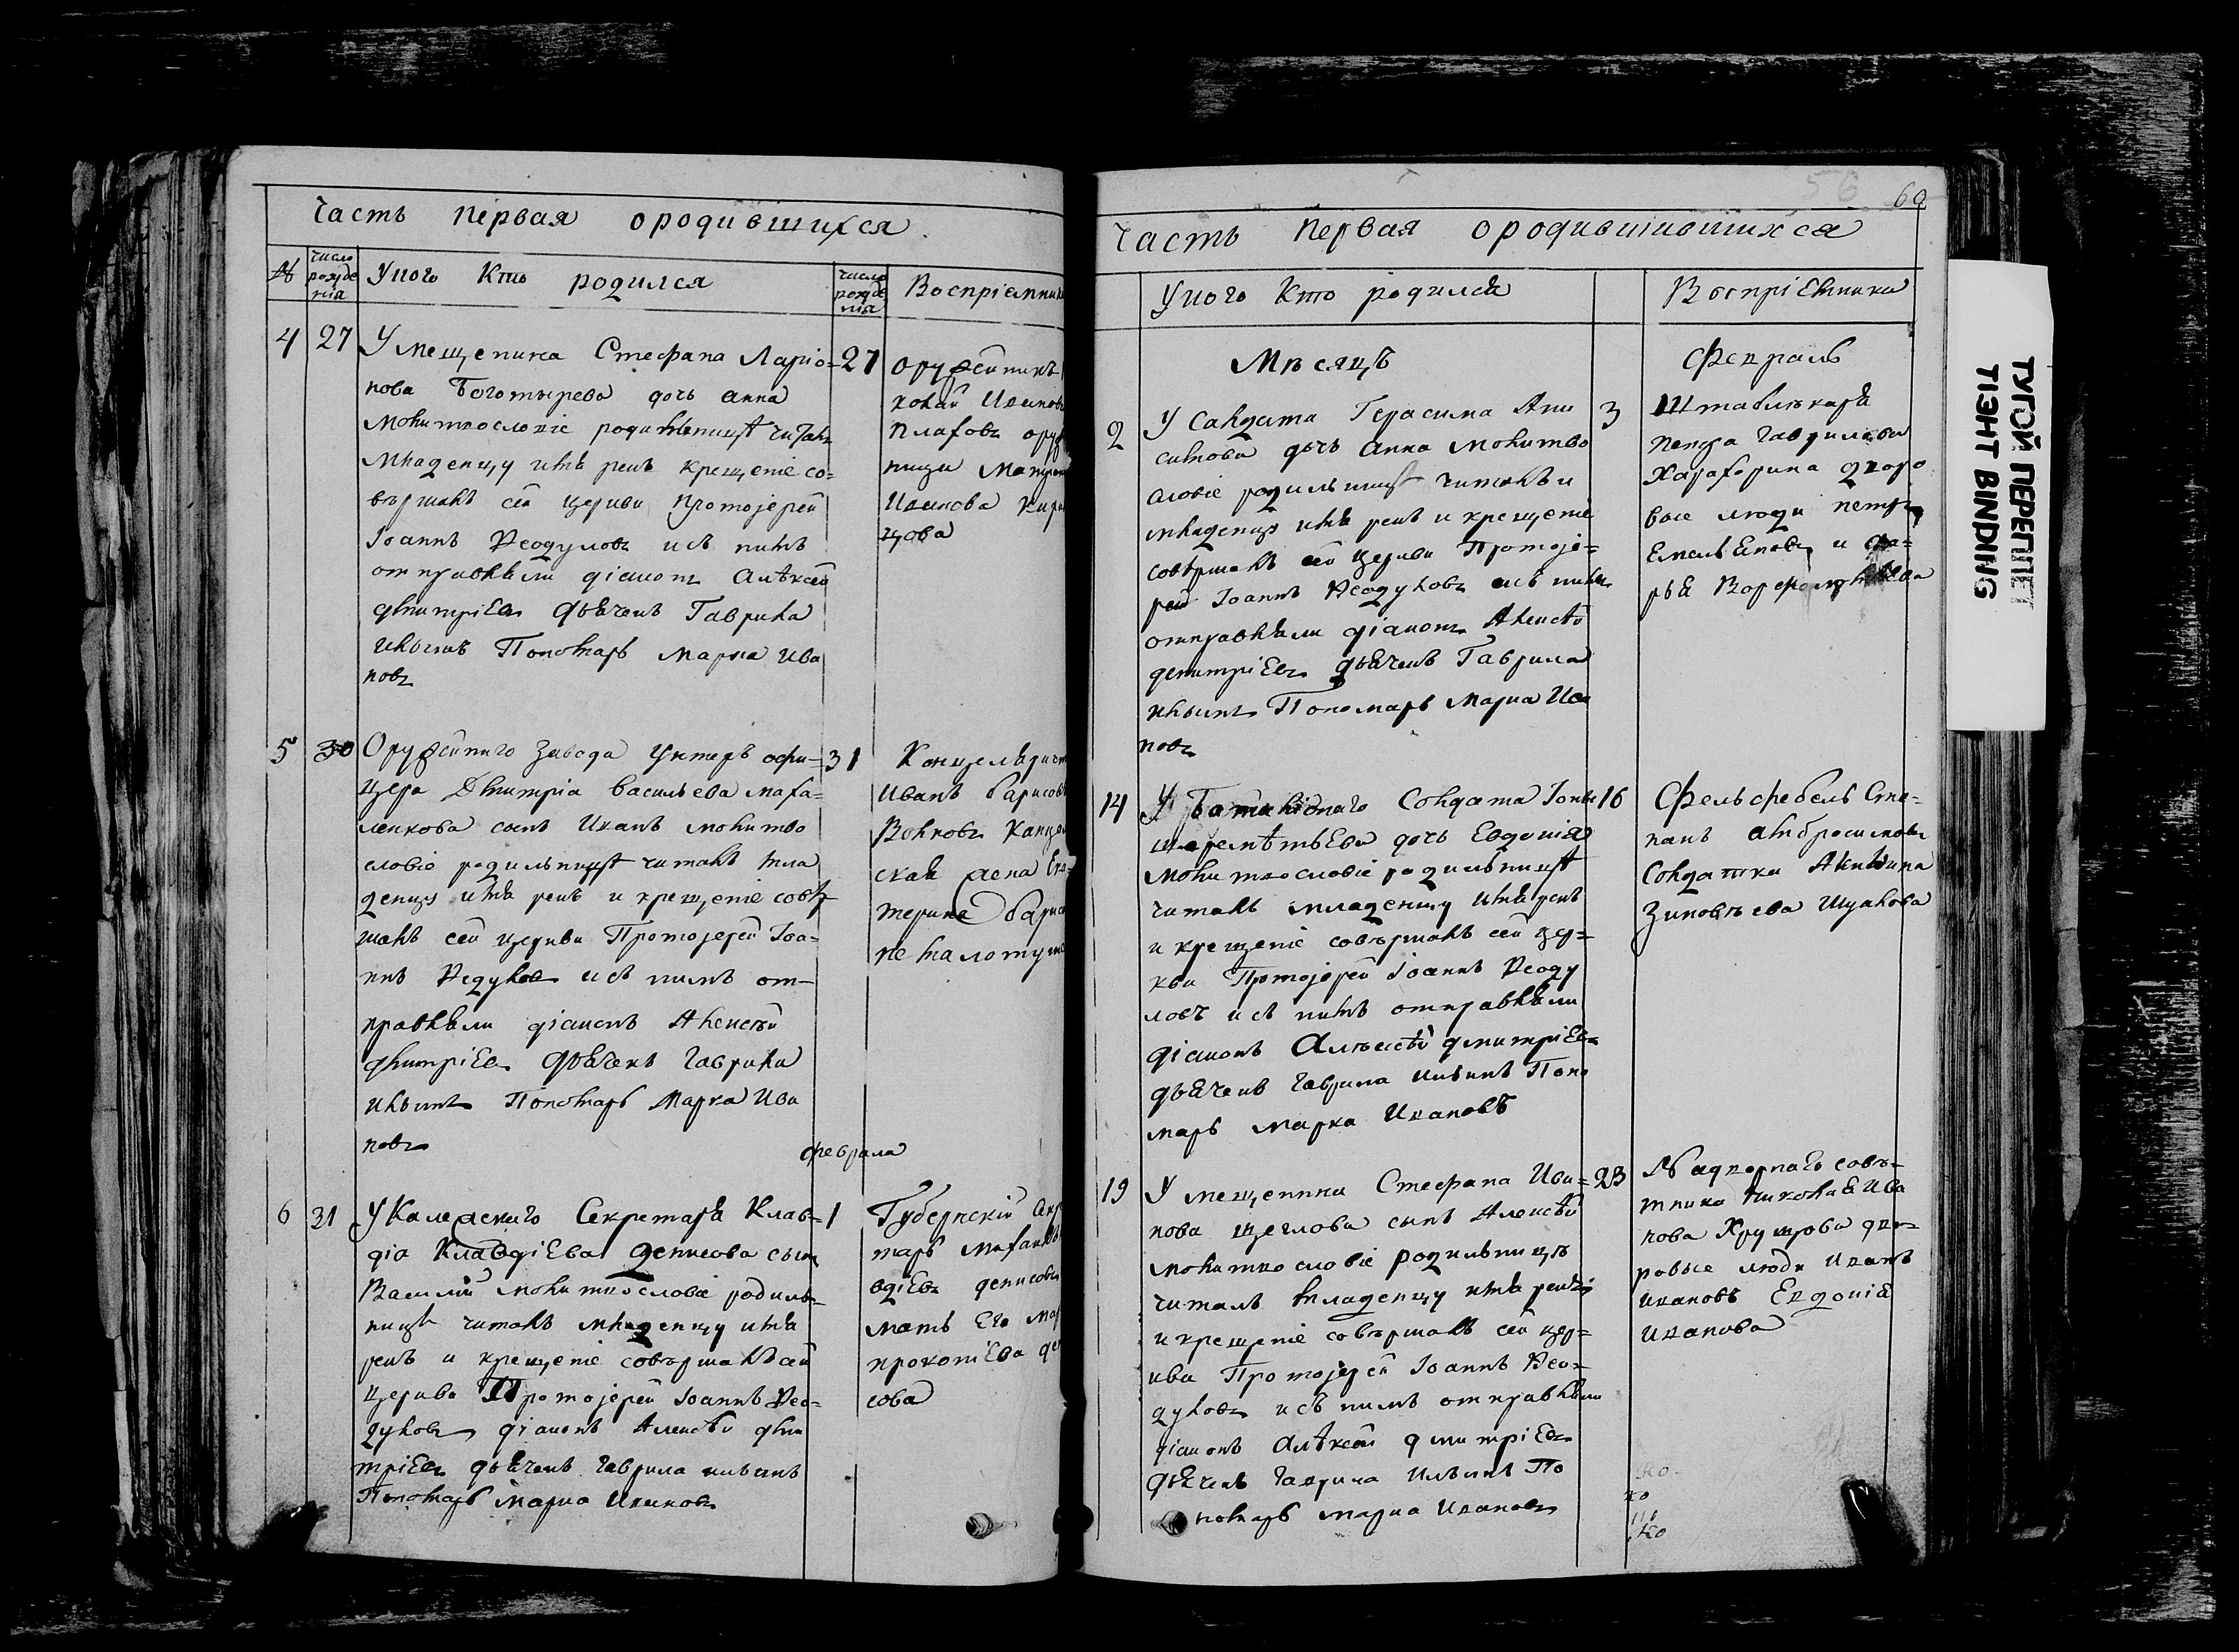 Часть первая ородившихся.
№
число рожде нія
Уного Кто родился
число рожде нія
Воспріемники
4 27
У мещенина Стефана Ларіо=
нова Боготырева дочь анна
молитвословіе родильницѣ читалъ
младенцу имя рекъ крещеніе со=
вершалъ сей церкви Протоіерей
Іоаннъ Ѳеодуловъ исъ нимъ
отправляли діаконъ Алѣксей
дмитріевъ дьяченъ Гаврила
ильинъ Пономарь марка ива
новъ
27
оружейникъ
колай Иванов
пицы Матрон
Иванова Кири
цова
5 30
Оружейнаго завода Унтеръ офи=
цера Дмитріа васильева маха=
ленкова сынъ Иванъ молитво
словіе родильницѣ читалъ мла
денцу имя рекъ и крещеніе сове
шалъ сей церкви Протоіерей Іоа=
ннъ Ѳедулов исъ нимъ от=
правляли діаконъ Алексѣй
дмитріев дьяченъ Гаврила
ильинъ Пономарь Марка Ива
новъ
31
Канцеляриcт
Иванъ барисов
Волковъ канцел
ская жена Ека=
терина барис
февраля
6 31
У Калежскаго Секретаря Клав=
діа Клавдіева денисова сынъ
Василій молитвословіе родиль=
ницѣ читалъ младенцу имя
рекъ и крещеніе совершалъ сей
церкви Протоіерей Іоаннъ Ѳео=
дуловъ діаконъ Алексѣй дми
тріевъ дьяченъ гаврила ильинъ
Пономарь марка Ивановъ
1
Губернскій Секр
тарь
вдіевъ денисовъ
мать Его мар
прокопіева де
сова
56 60
Часть первая ородившившихся
Уного Кто родился
Воспріемники
Мѣсяцъ
Февраль
2
У Салдата Герасима Ани
симова дочь Анна молитво
словіе родильницѣ читалъ и
младенцу имя рекъ и крещеніе
совершалъ сей церкви Протоіе=
рей Іоаннъ Ѳеодуловъ исъ нимъ
отправляли діаконъ Алексѣй
демитріевъ дьяченъ Гаврила
ильинъ Пономарь Марка Ива
новъ
3
Штаблѣкаря
Гаврилова
дворо
вые люди петръ
Емельяновъ и да=
рья
14
У Баталіоннаго Солдата Іоны
шереметьева дочь Евдокія
молитвословіе родильницѣ
читалъ младенцу имя рекъ
и крещеніе совершалъ сей цер=
кви Протоіерей іоаннъ Ѳеоду
ловъ исъ нимъ отправляли
діаконъ Алексѣй дмитріевъ
дьяченъ гаврила ильинъ Поно
марь марка Ивановъ
16
Фельсфебель Сте=
панъ амбросимовъ
Солдатка Акилина
Зиновьева Шулова
19
У мещенина Стефана Ива=
нова щеглова сынъ Алексѣй
молитвословіе родильницѣ
читалъ младенцу имя рекъ
и крещеніе совершалъ сей цер=
кви Протоіерей Іоаннъ Ѳео=
дуловъ исъ нимъ отправляли
діаконъ Алѣксѣй дмитріевъ
Дьяченъ гаврила Ильинъ По
номарь марка Ивановъ
23
Надворнаго совѣ=
тника николая Ива
нова Хрущова дво=
ровые люди Иванъ
ивановъ Евдокія
иванова
ТУГОЙ ПЕРЕПЛЕТ
TIЭHT BINDING